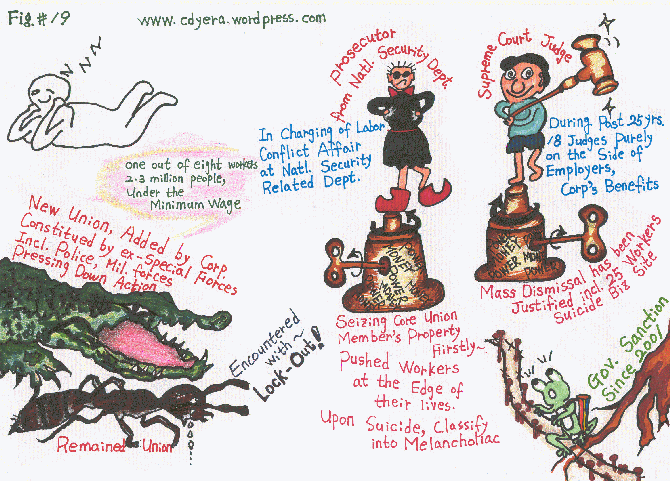 Fig.#19
www.cdyera.wordpress.com
Z Z Z
one out of eight workers
2.3 million people,
Under the
Minimum Wage
prosecutor
from Natl. Security Dept.
In Charging of Labor
Conflict Affair
at Natl. Security
Related Dept.
Supreme Court Judge
During Past 25 yrs.
18 Judges Purely
on the Side of
Employers,
Corp's Benefits
New Union, Added by Corp.
Constitued by ex-Special Forces
Incl. Police, Mil. forces
Pressing Down Action
Encountered
with ~
Lock-Out!
Remained Union
Seizing Core Union
Member's Property
Firstly~
Pushed Workers
at the Edge of
their lives.
Upon Suicide, Classify
into Melancholiac
Mass Dismissal has been
Justified incl. 25 Workers
Suicide Biz Site
Gov. Sanction